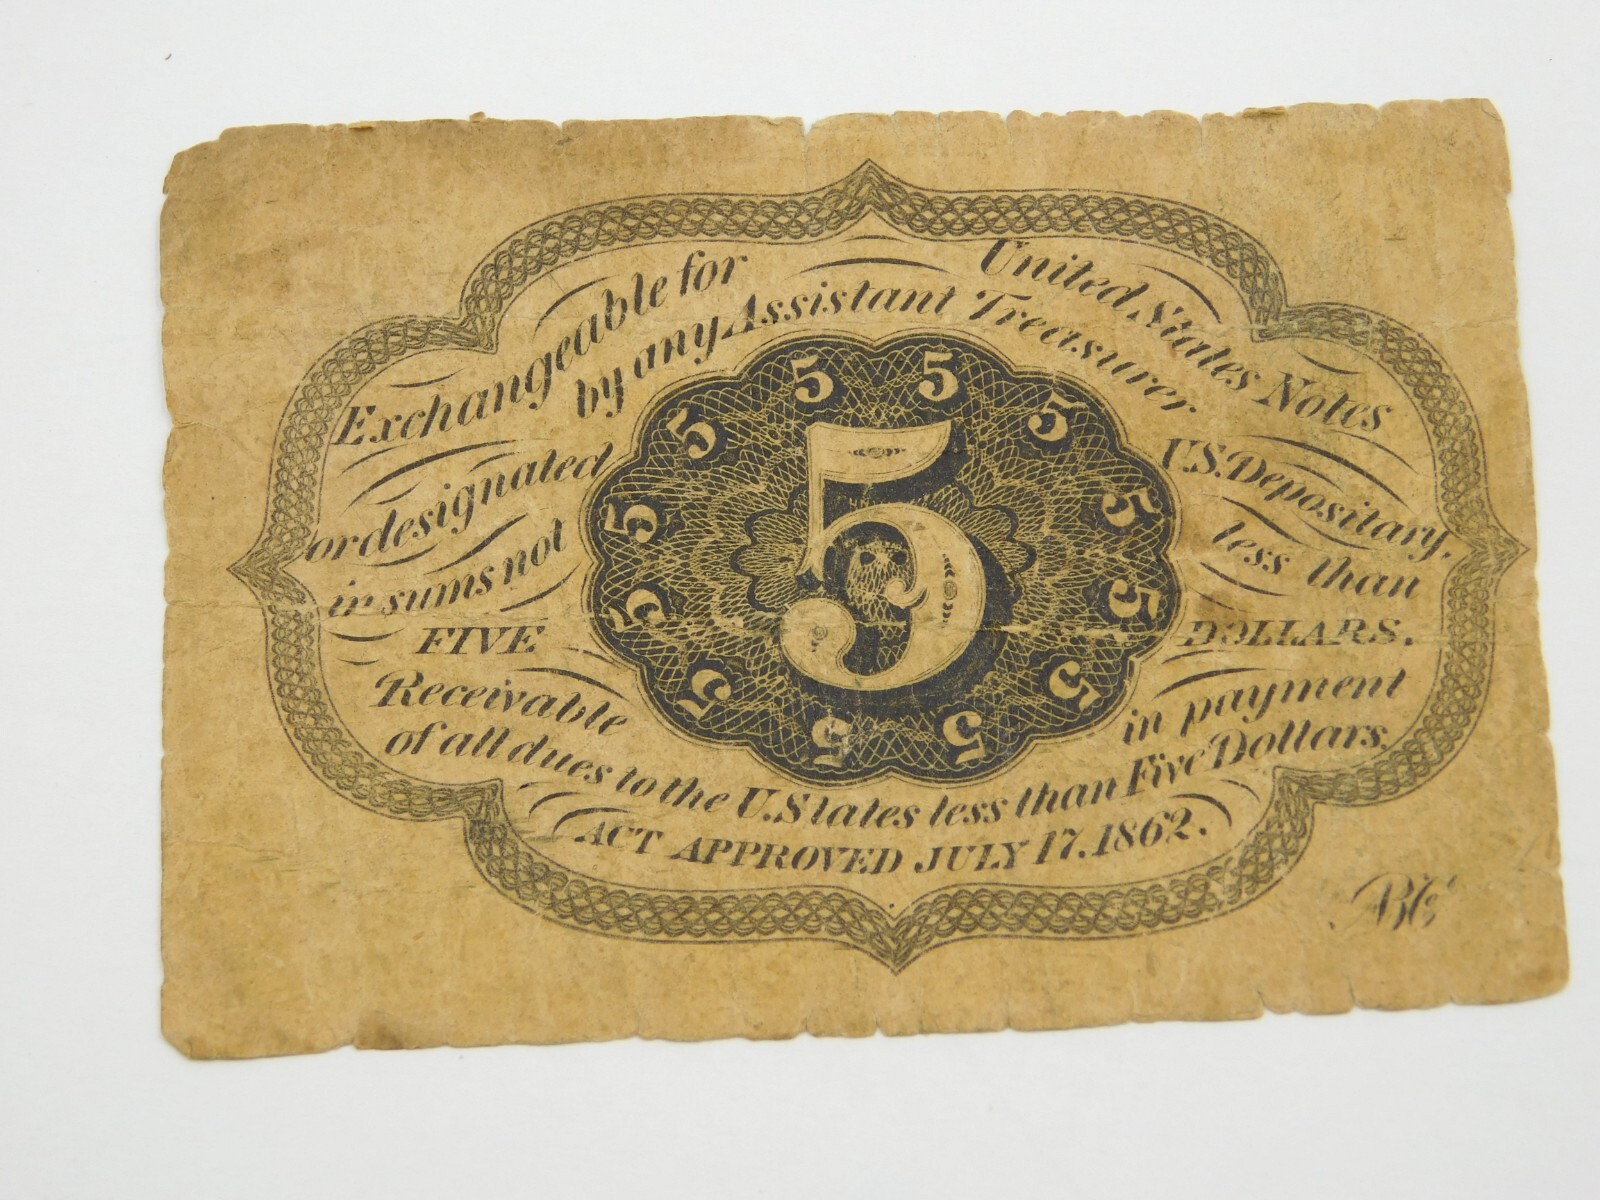 Exchangeable for United States Notes
by any Assistant Treasurer
or designated U.S. Depositary,
in sums not less than
FIVE DOLLARS.
Receivable in payment
of all dues to the U. States less than Five Dollars.
ACT APPROVED JULY 17, 1862.
5
5
5
5
5
5
5
5
5
5
5
5
5